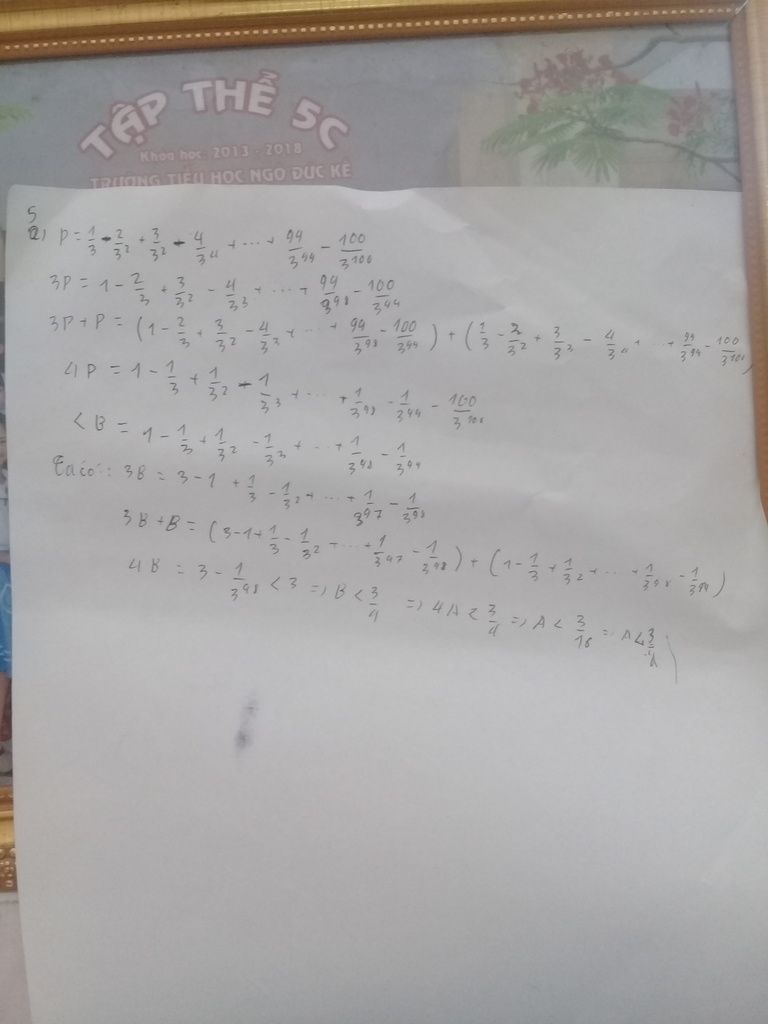 TẬP THỂ 5C
Khoá học: 2013 - 2018
TRƯỜNG TIỂU HỌC NGÔ ĐỨC KẾ
5
a) P = 1/3 - 2/3^2 + 3/3^2 - 4/3^4 + ... + 99/3^99 - 100/3^100
3P = 1 - 2/3 + 3/3^2 - 4/3^3 + ... + 99/3^98 - 100/3^99
3P + P = (1 - 2/3 + 3/3^2 - 4/3^3 + ... + 99/3^98 - 100/3^99) + (1/3 - 2/3^2 + 3/3^3 - 4/3^4 + ... + 99/3^99 - 100/3^100)
4P = 1 - 1/3 + 1/3^2 - 1/3^3 + ... + 1/3^98 - 1/3^99 - 100/3^100
< B = 1 - 1/3 + 1/3^2 - 1/3^3 + ... + 1/3^98 - 1/3^99
Ta có: 3B = 3 - 1 + 1/3 - 1/3^2 + ... + 1/3^97 - 1/3^98
3B + B = (3 - 1 + 1/3 - 1/3^2 - ... + 1/3^97 - 1/3^98) + (1 - 1/3 + 1/3^2 + ... + 1/3^98 - 1/3^99)
4B = 3 - 1/3^98 < 3 => B < 3/4 => 4A < 3/4 => A < 3/16 => A < 3/